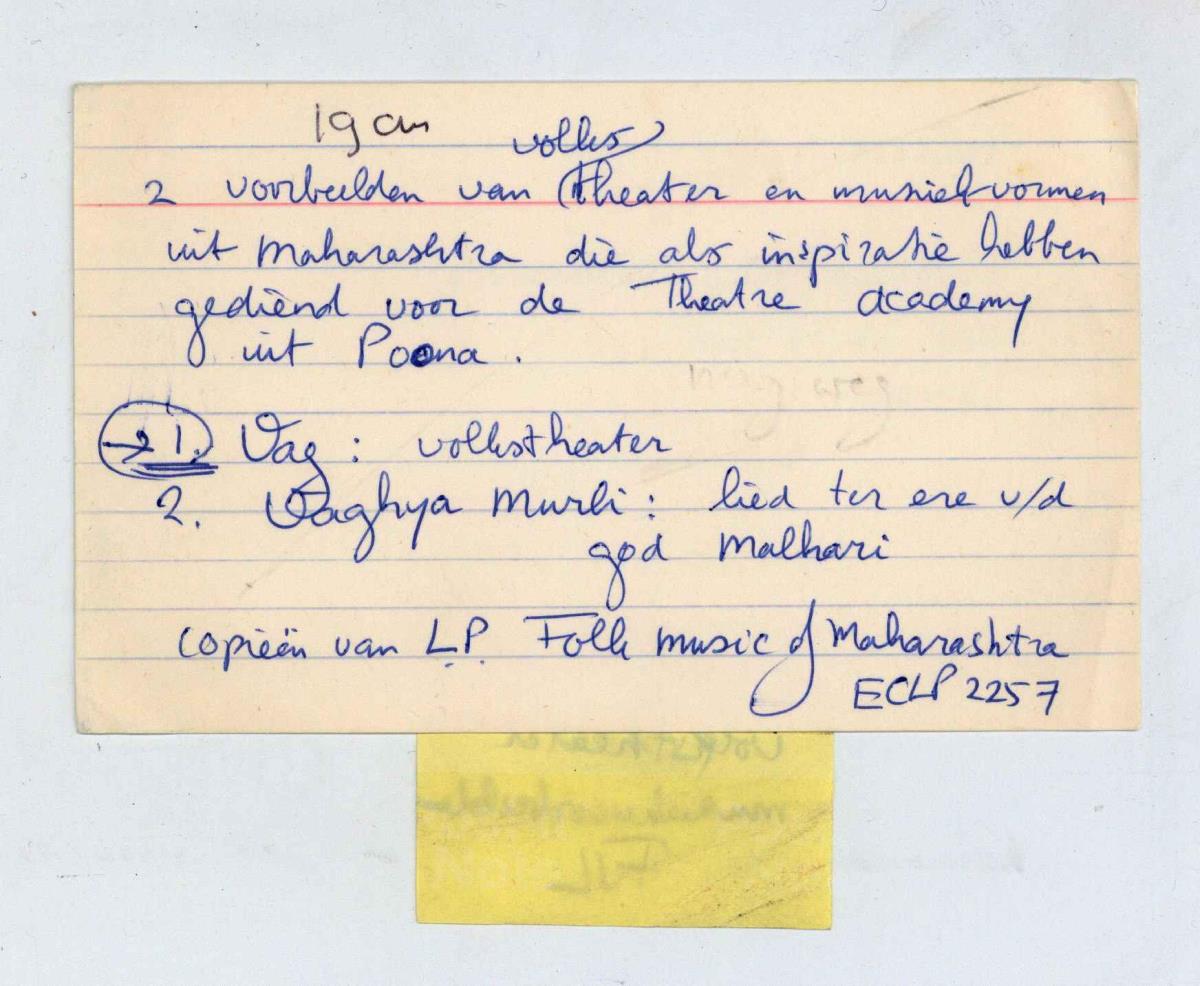 19 cm
volks
2 voorbeelden van (theater en muziekvormen
uit Maharashtra die als inspiratie hebben
gediend voor de Theatre academy
uit Poona.
→ 1. Vag : volkstheater
2. Vaghya Murli : lied ter ere v/d
god Malhari
copieën van L.P. Folk music of Maharashtra
ECLP 2257
volkstheater